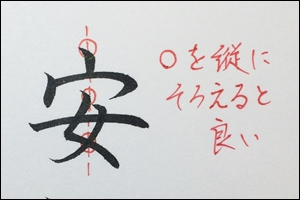 安
○を縦に
そろえると
良い